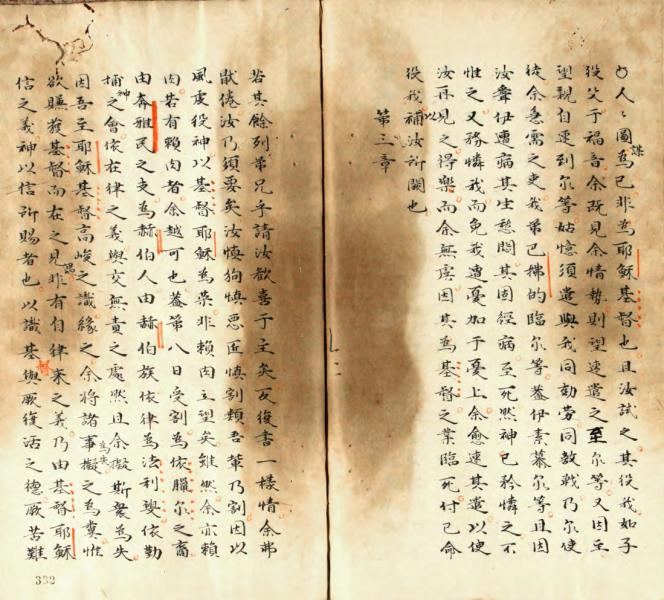 〇人〻圖謀為己非為耶穌基督也且汝試之其役我如子
役父于福音余既見余情勢則望速遣之至尔等又因主
望親自速到尔等姑憶須遣與我同勤勞同教戰乃尔使
徒余急需之吏我弟巴拂的臨尔等蓋伊素慕尔等且因
汝聞伊遭病其生愁悶其固經病至死然神已矜憐之不
惟之又務憐我而免我遭憂加于憂上余愈速其遣以使
汝再見之得樂而余無慮因其為基督之業臨死付己命
役我以補汝所闕也
第三章
若其餘列弟兄乎請汝歡喜于主矣反復書一樣情余弗
猒倦汝乃須要矣汝慎狗慎惡匠慎割類吾輩乃割因以
風虔役神以基督耶穌為榮非賴肉立望矣雖然余亦賴
肉若有賴肉者余越可也蓋第八日受割為依臘尔之裔
由奔雅民之支為赫伯人由赫伯族依律為法利塞依勤
捕神之會依在律之義與交無責之處然且余擬斯衆為失
因吾主耶穌基督高峻之識緣之余將諸事擬之為失為糞惟
欲賺獲基督而在之見非有自律來之義乃由基督耶穌
信之義神以信所賜者也以識基督與厥復活之德厥苦難
332